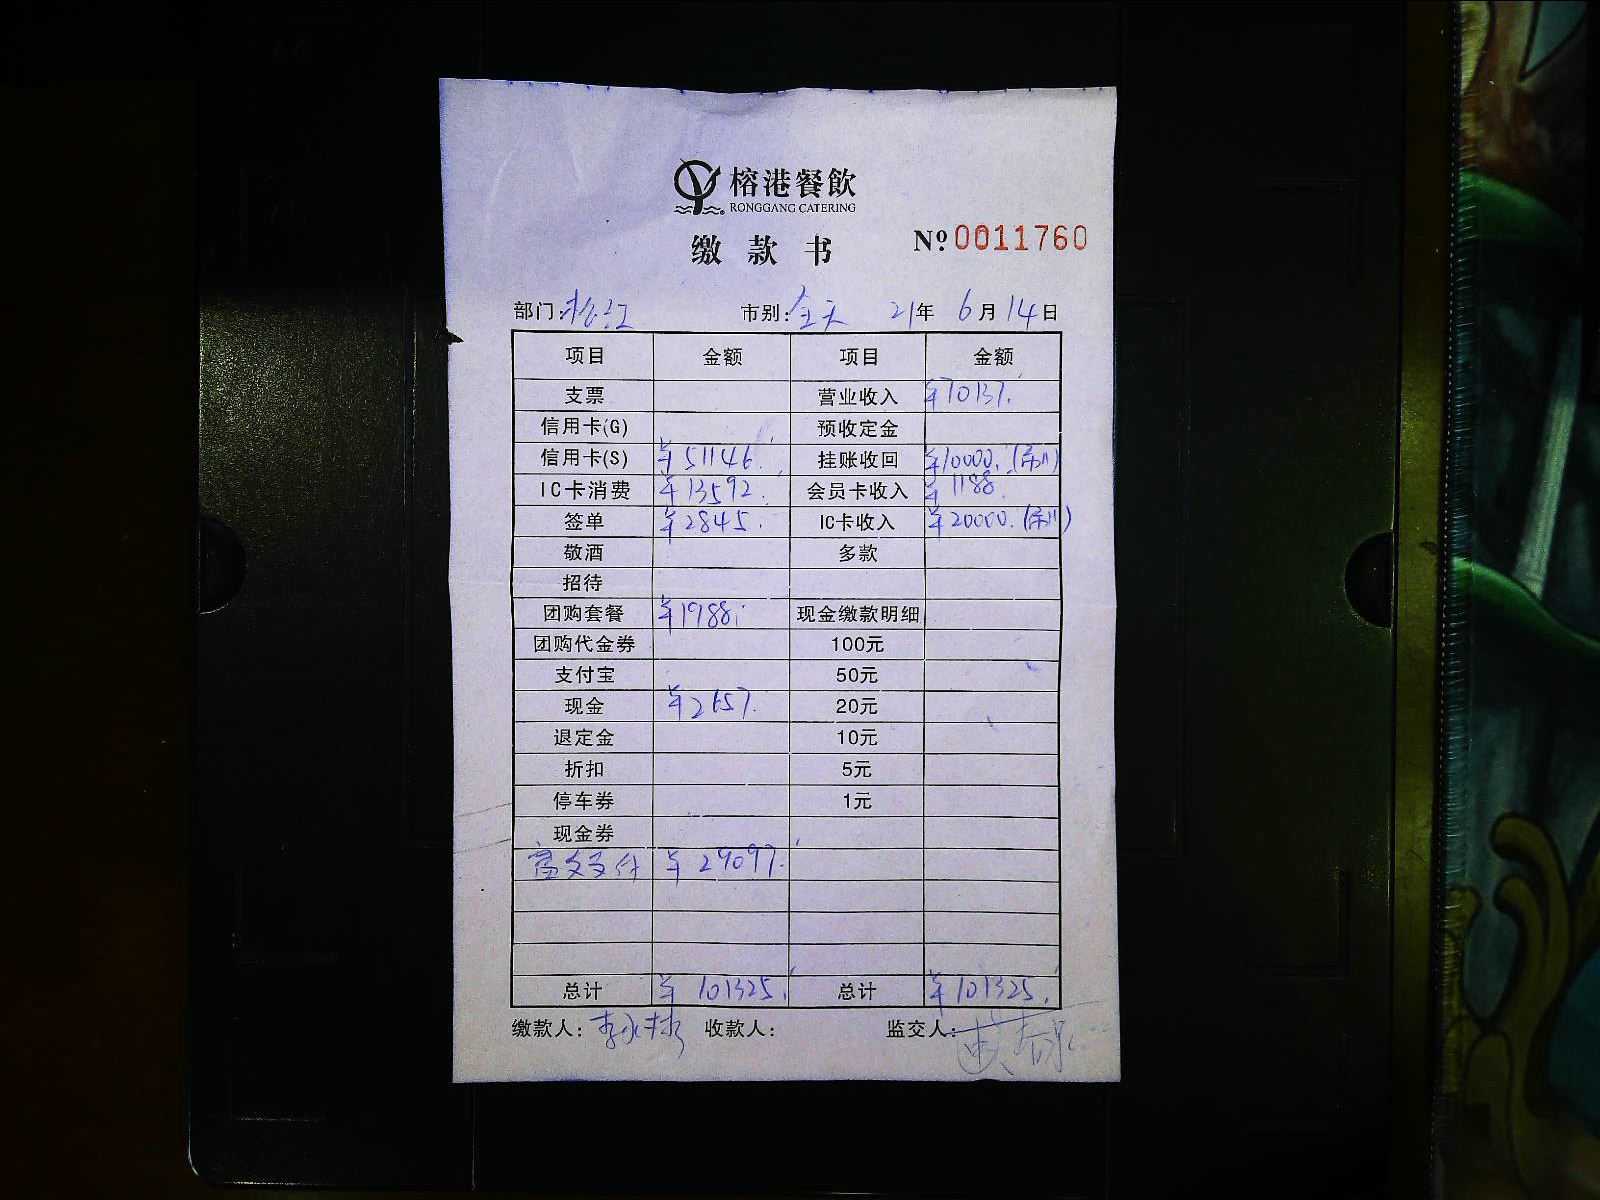 榕港餐飲
RONGGANG CATERING
缴款书 Nº 0011760
部门:松江 市别:全天 21年 6月14日
项目 金额 项目 金额
支票 营业收入 ¥70137.
信用卡(G) 预收定金
信用卡(S) ¥51146. 挂账收回 ¥10000.
IC卡消费 ¥13592. 会员卡收入 ¥1188.
签单 ¥2845. IC卡收入 ¥20000.
敬酒 多款
招待
团购套餐 ¥1988. 现金缴款明细
团购代金券 100元
支付宝 50元
现金 ¥2657. 20元
退定金 10元
折扣 5元
停车券 1元
现金券
富友支付 ¥29097.
总计 ¥101325. 总计 ¥101325.
缴款人: 收款人: 监交人: